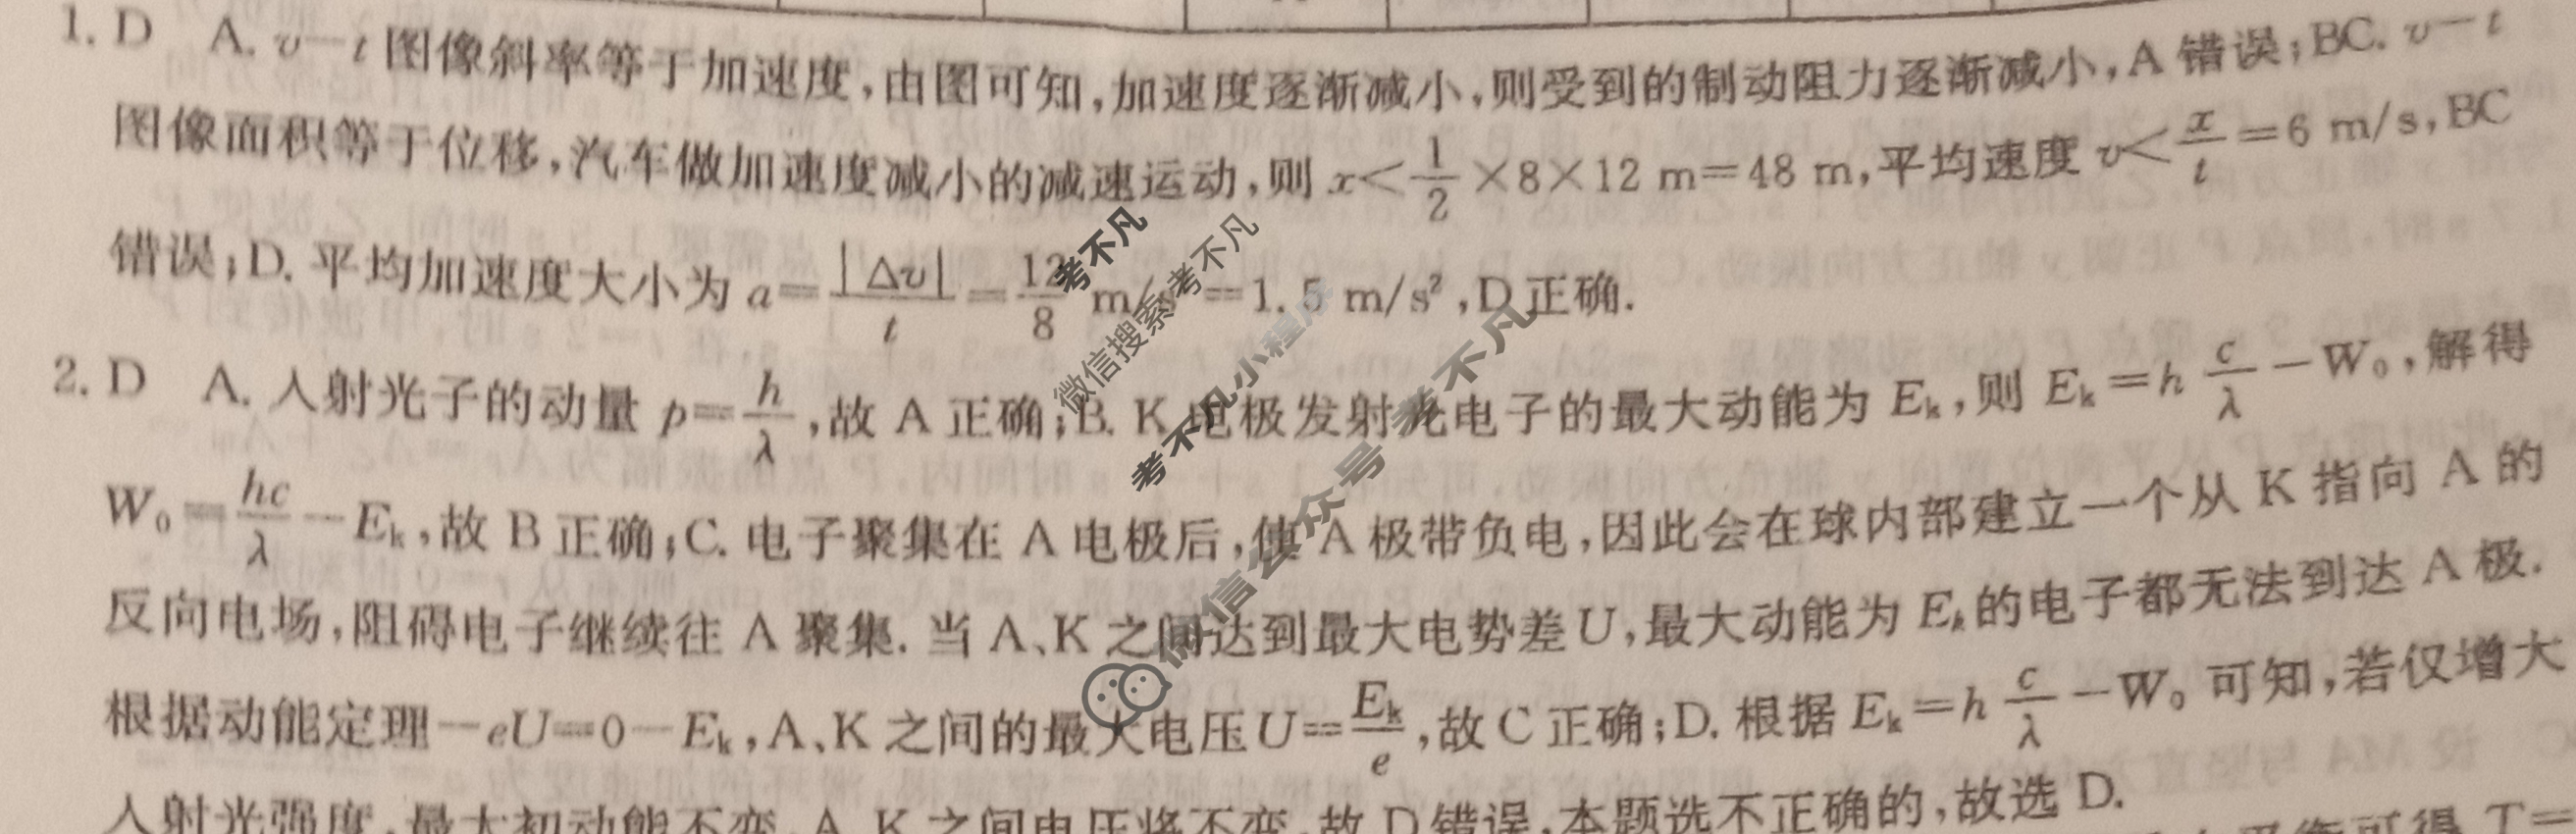 1. D A. v－t 图像斜率等于加速度,由图可知,加速度逐渐减小,则受到的制动阻力逐渐减小,A 错误;BC. v－t
图像面积等于位移,汽车做加速度减小的减速运动,则 x＜1/2×8×12 m＝48 m,平均速度 v＜x/t＝6 m/s,BC
错误;D. 平均加速度大小为 a＝|Δv|/t＝12/8 m/s²＝1.5 m/s²,D 正确.
2. D A. 入射光子的动量 p＝h/λ,故 A 正确;B. K 电极发射光电子的最大动能为 Eₖ,则 Eₖ＝h c/λ－W₀,解得
W₀＝hc/λ－Eₖ,故 B 正确;C. 电子聚集在 A 电极后,使 A 极带负电,因此会在球内部建立一个从 K 指向 A 的
反向电场,阻碍电子继续往 A 聚集. 当 A、K 之间达到最大电势差 U,最大动能为 Eₖ的电子都无法到达 A 极.
根据动能定理－eU＝0－Eₖ,A、K 之间的最大电压 U＝Eₖ/e,故 C 正确;D. 根据 Eₖ＝h c/λ－W₀ 可知,若仅增大
入射光强度,最大初动能不变,A、K 之间电压将不变,故 D 错误,本题选不正确的,故选 D.
平衡可得 T＝
考不凡
微信搜索考不凡
考不凡小程序
微信公众号 考不凡